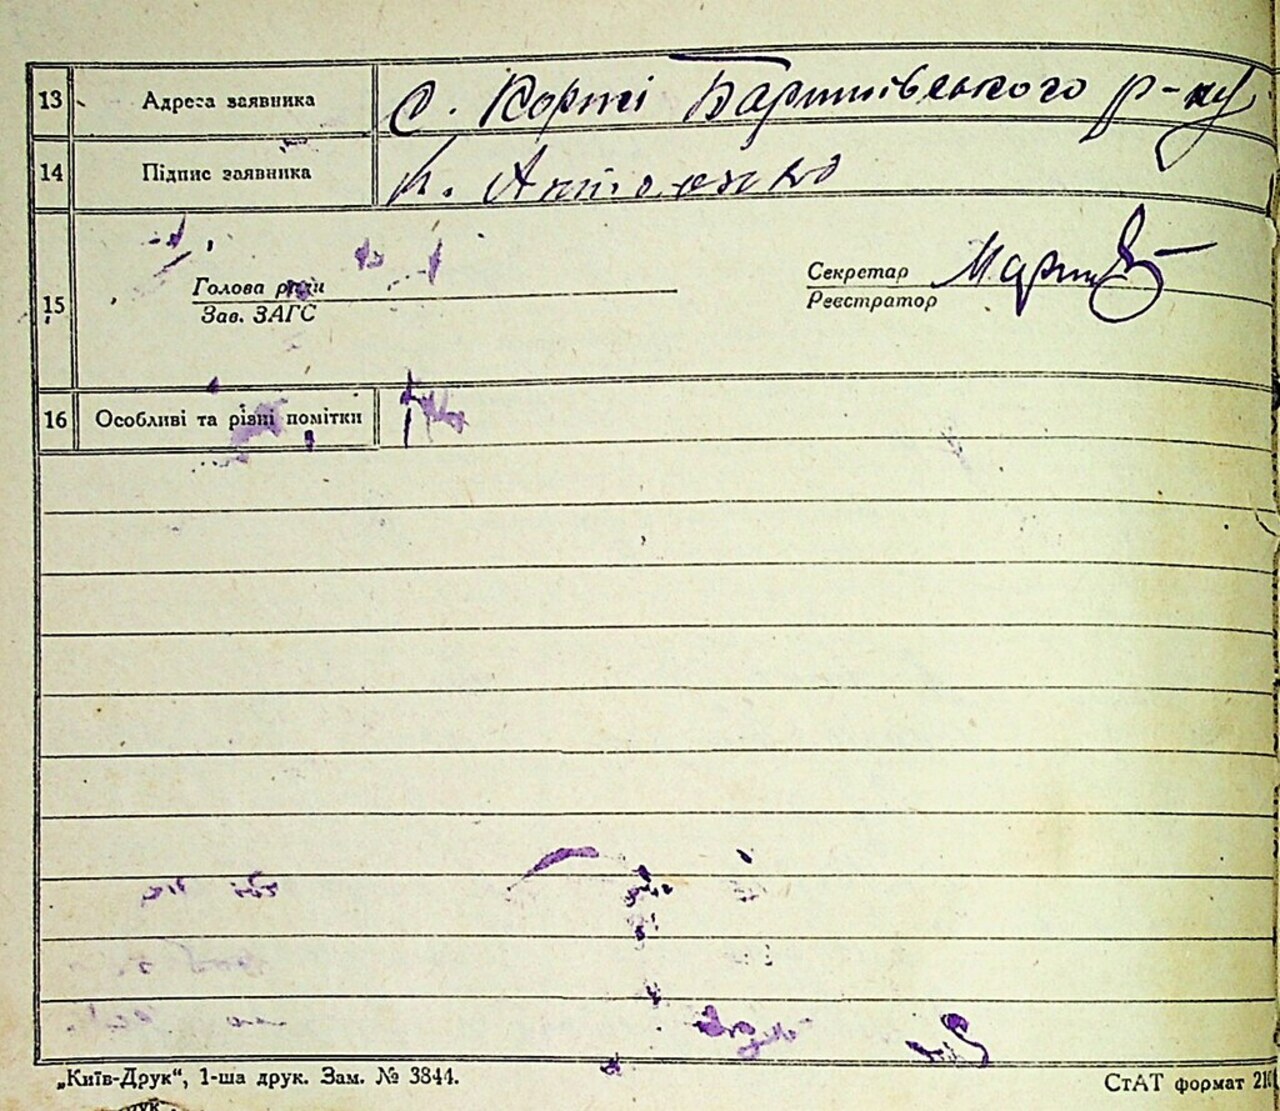 13 Адреса заявника с. Коржі Баришівського р-ну
14 Підпис заявника К. Антоненко
15 Голова ради
Зав. ЗАГС
Секретар
Реєстратор
16 Особливі та різні помітки
„Київ-Друк“, 1-ша друк. Зам. № 3844.
СтАТ формат 210